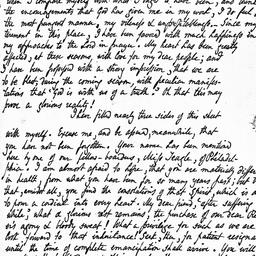 them I compare myself with what I ought to have been, and think
the encouragements that God has given me in my work, I do feel, in
the most pungent manner, my vileness & unprofitableness. Since my
ment in this place, I have been favored with much happiness in
my approaches to the Lord in prayer. My heart has been greatly
affected, at these seasons, with love for my dear people; and
I have been possessed with a strong impression, that we are
to be blest, during the coming season, with peculiar manifes-
tations that "God is with us of a truth." Oh that this may
prove a glorious reality!
I have filled nearly three sides of this sheet
with myself. Excuse me, and be assured, meanwhile, that
you have not been forgotten. Your name has been mentioned
here by one of our fellow-boarders, Miss of Philadel-
phia. I am almost afraid to hope, that you are materially differ
in health, from what you have been for so many years past; but I
that, amidst all, you find the consolations of that Spirit, which is a
to pour a cordial into every heart. My dear friend, "after suffering
while," what a glorious rest remains, the purchase of our dear Re
's agony & bloody sweat! What a privilege, for such as we are
look forward to that inheritance! Let, then, for patient resigna
until the time of complete emancipation shall arrive. You will